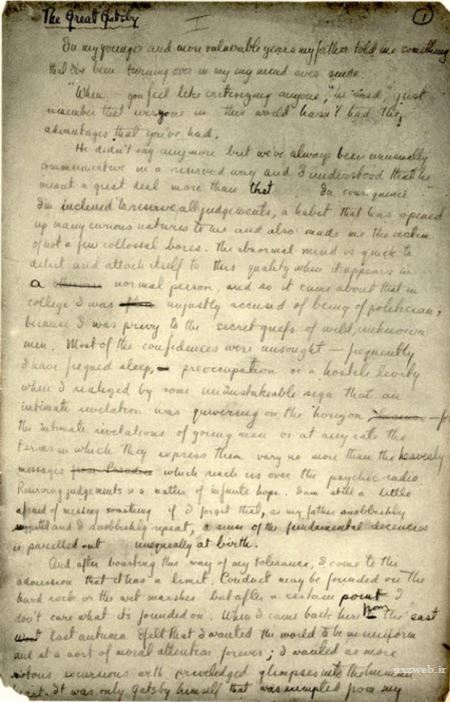 The Great Gatsby
I
1
In my younger and more vulnerable years my father told me something
that I've been turning over in my my mind ever since.
"When you feel like criticizing anyone," he said, "just
remember that everyone in this world hasn't had the
advantages that you've had.
He didn't say anymore but we've always been unusually
communicative in a reserved way and I understood that he
meant a great deal more than that In consequence
I'm inclined to reserve all judgements, a habit that has opened
up many curious natures to me and also made me the victim
of not a few collossal bores. The abnormal mind is quick to
detect and attach itself to this quality when it appears in
a normal person, and so it came about that in
college I was unjustly accused of being of politician,
because I was privy to the secret griefs of wild, unknown
men. Most of the confidences were unsought — frequently
I have feigned sleep, preoccupation or a hostile levity
when I realized by some unmistakeable sign that an
intimate revelation was quivering on the horizon —
the intimate revelations of young men or at any rate the
terms in which they express them vary no more than the heavenly
messages from Paradise which reach us over the psychic radio.
Reserving judgements is a matter of infinite hope. I am still a little
afraid of missing something if I forget that, as my father snobbishly
and I snobbishly repeat, a sense of the fundamental decencies
is parcelled out unequally at birth.
And after boasting this way of my tolerance, I come to the
admission that it has a limit. Conduct may be founded on the
hard rock or the wet marshes but after a certain point I
don't care what its founded on. When I came back here from the east
last autumn I felt that I wanted the world to be in uniform
and at a sort of moral attention forever; I wanted no more
riotous excursions with priviledged glimpses into the human
heart. It was only Gatsby himself that was exempted from my
nazweb.ir